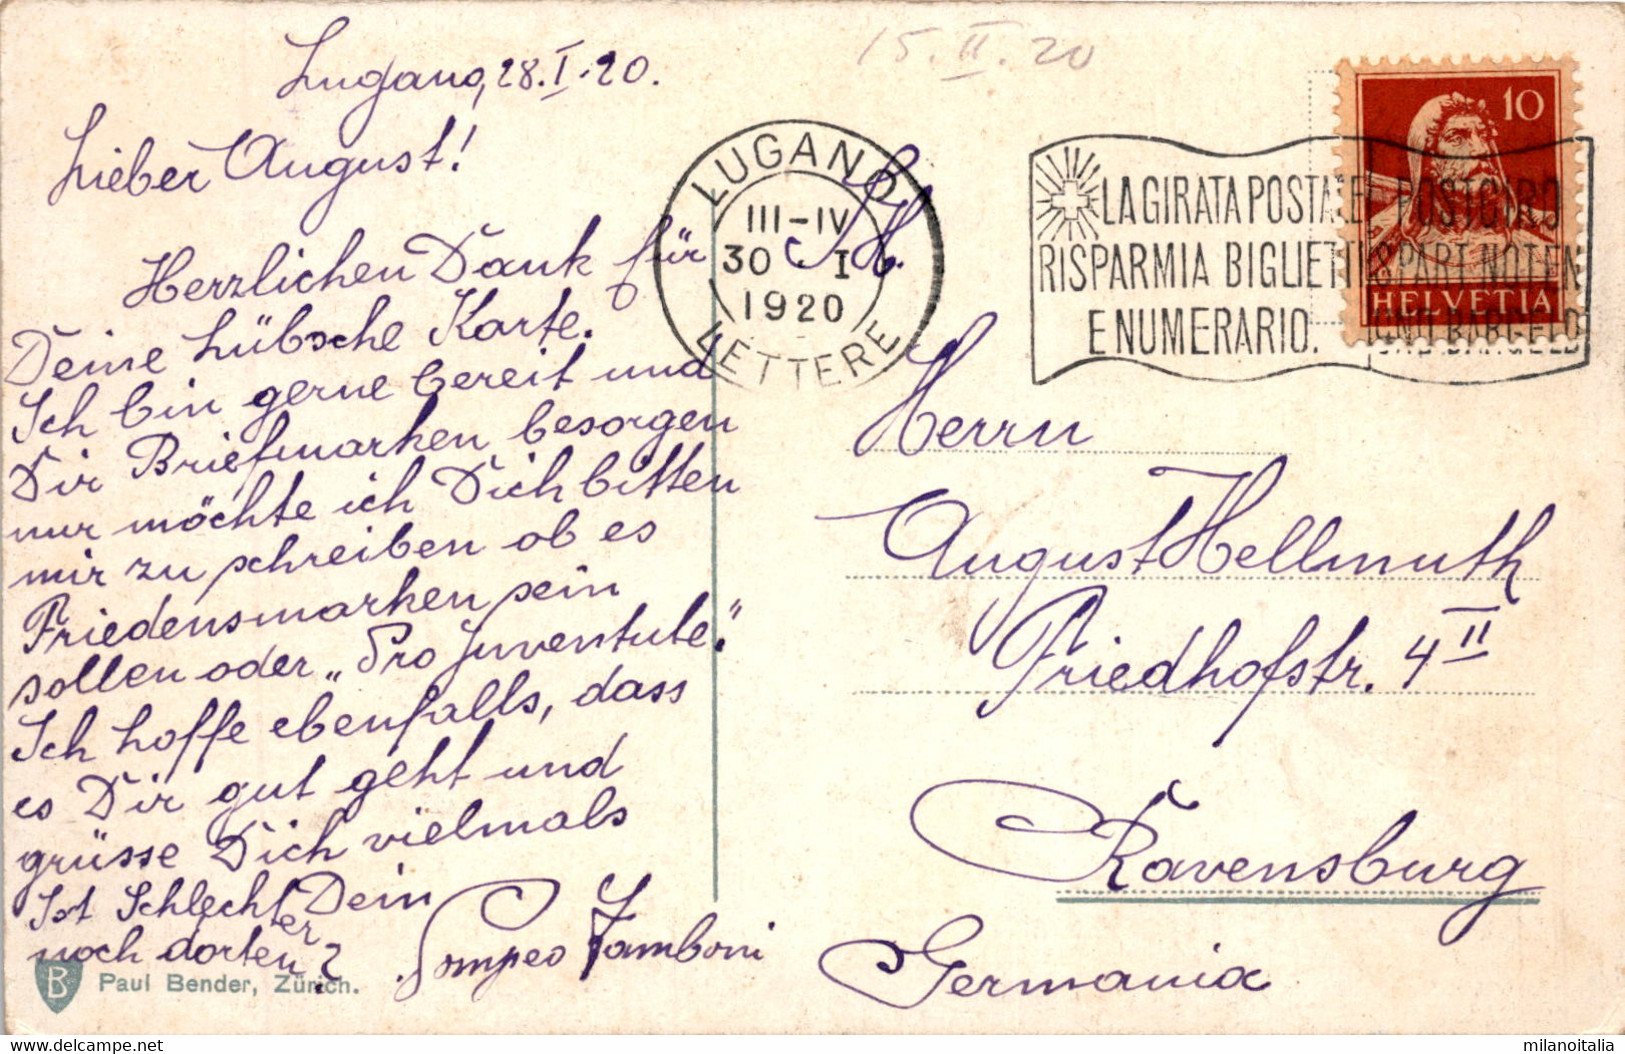 Lugano, 28.I.20.
15.II.20
Lieber August!
Herzlichen Dank für
Deine hübsche Karte.
Ich bin gerne bereit und
Dir Briefmarken besorgen
nur möchte ich Dich bitten
mir zu schreiben ob es
Friedensmarken sein
sollen oder „Pro Juventute."
Ich hoffe ebenfalls, dass
es Dir gut geht und
grüsse Dich vielmals
Dein
Pompeo Tamboni
Ist Schlechter
noch dorten?
B
Paul Bender, Zürich.
LUGANO
III-IV
30 I
1920
LETTERE
LA GIRATA POSTALE
RISPARMIA BIGLIETTI
E NUMERARIO.
POSTGIRO
SPART NOTEN
UND BARGELD
10
HELVETIA
Herrn
August Hellmuth
Friedhofstr. 4 II
Ravensburg
Germania
www.delcampe.net
milanoitalia